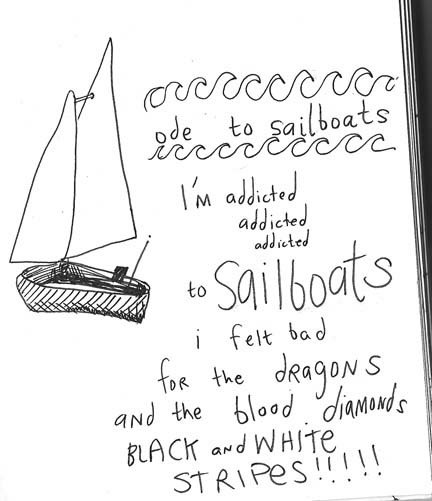 ode to sailboats
I'M addicted
addicted
addicted
to Sailboats
i felt bad
foR the dRagoNS
aND the blood diamoNds
BLACK and WHITE
STRIPES!!!!!